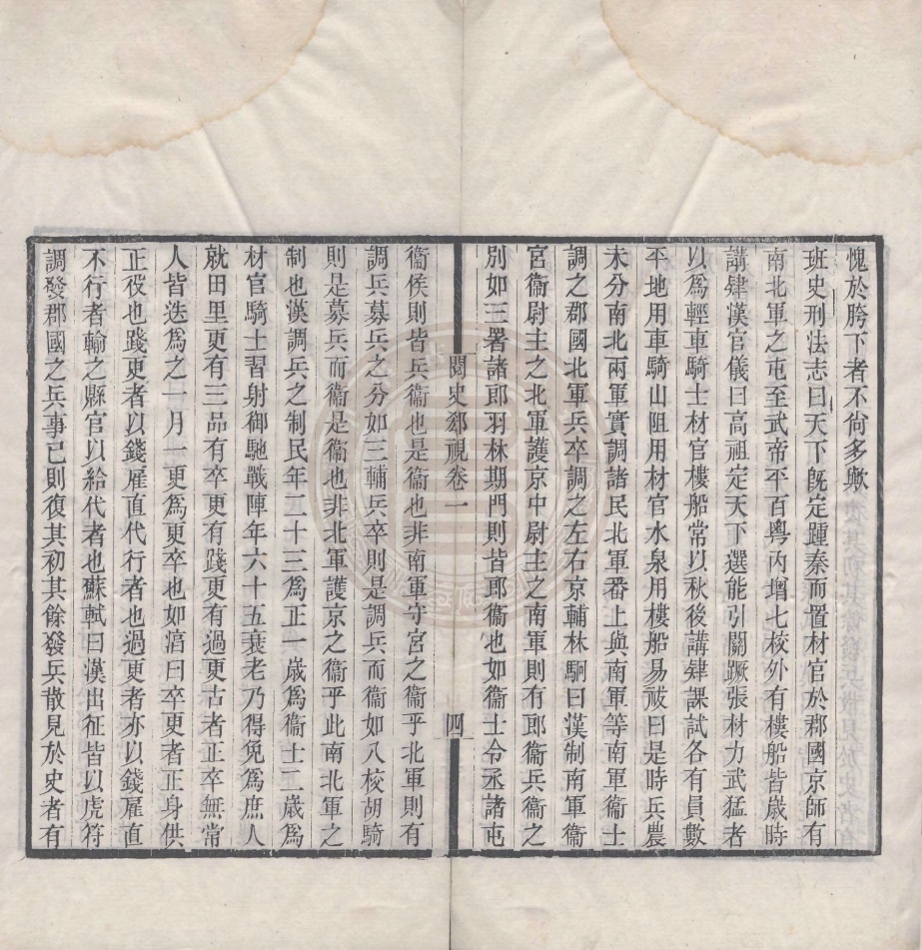 愧於胯下者不尙多歟
班史刑法志曰天下旣定踵秦而置材官於郡國京師有
南北軍之屯至武帝平百粤內增七校外有樓船皆歲時
講肄漢官儀曰高祖定天下選能引關蹶張材力武猛者
以爲輕車騎士材官樓船常以秋後講肄課試各有員數
平地用車騎山阻用材官水泉用樓船易祓曰是時兵農
未分南北兩軍實調諸民北軍番上與南軍等南軍衞士
調之郡國北軍兵卒調之左右京輔林駉曰漢制南軍衞
宮衞尉主之北軍護京中尉主之南軍則有郎衞兵衞之
別如三署諸郎羽林期門則皆郎衞也如衞士令丞諸屯
閱史郄視卷一
四
衞候則皆兵衞也是衞也非南軍守宮之衞乎北軍則有
調兵募兵之分如三輔兵卒則是調兵而衞如八校胡騎
則是募兵而衞是衞也非北軍護京之衞乎此南北軍之
制也漢調兵之制民年二十三爲正一歲爲衞士二歲爲
材官騎士習射御馳戰陣年六十五衰老乃得免爲庶人
就田里更有三品有卒更有踐更有過更古者正卒無常
人皆迭爲之一月一更爲更卒也如淳曰卒更者正身供
正役也踐更者以錢雇直代行者也過更者亦以錢雇直
不行者輸之縣官以給代者也蘇軾曰漢出征皆以虎符
調發郡國之兵事已則復其初其餘發兵散見於史者有